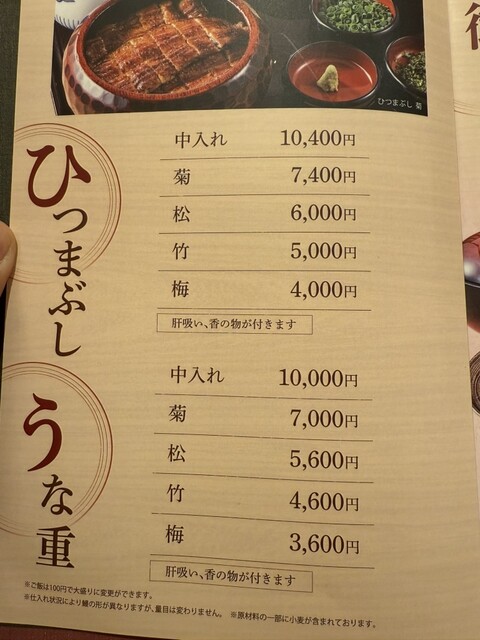 ひつまぶし 菊
ひつまぶし
中入れ 10,400円
菊 7,400円
松 6,000円
竹 5,000円
梅 4,000円
肝吸い、香の物が付きます
うな重
中入れ 10,000円
菊 7,000円
松 5,600円
竹 4,600円
梅 3,600円
肝吸い、香の物が付きます
※ご飯は100円で大盛りに変更ができます。
※仕入れ状況により鰻の形が異なりますが、量目は変わりません。 ※原材料の一部に小麦が含まれております。